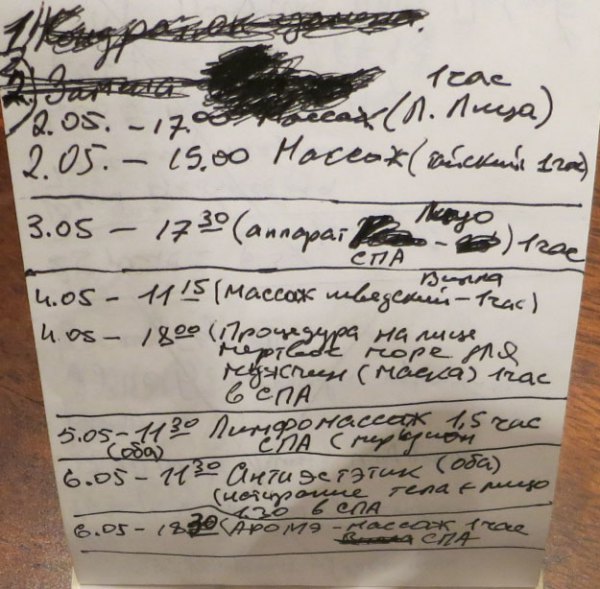 1)
2)
1 час
2.05. - 17.00 Массаж (Л. Лица)
2.05. - 19.00 Массаж (тайский 1 час)
Лицо
3.05 - 17 30 (аппарат - ) 1 час
СПА
Вилла
4.05 - 11 15 (массаж шведский - 1 час)
4.05 - 18 00 (Процедура на лице
мертвое море для
мужчин (маска) 1 час
в СПА
5.05 - 11 30 Лимфомассаж 1,5 час
(оба) СПА (
6.05 - 11 30 Антиэстэтик (оба)
тела + лицо
1.30 в СПА
6.05 - 18 30 (Аромэ - массаж 1 час
СПА